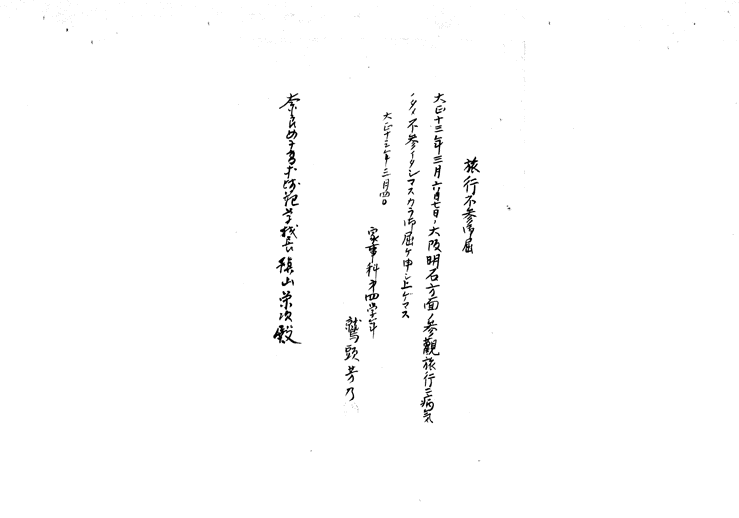 旅行不参御届
大正十三年三月六日七日ノ大阪明石方面ノ参観旅行ニ病気
ノタメ不参イタシマスカラ御届ケ申シ上ゲマス
大正十三年三月四日
家事科第四学年
鷲頭芳乃
奈良女子高等師範学校長 槇山栄次殿